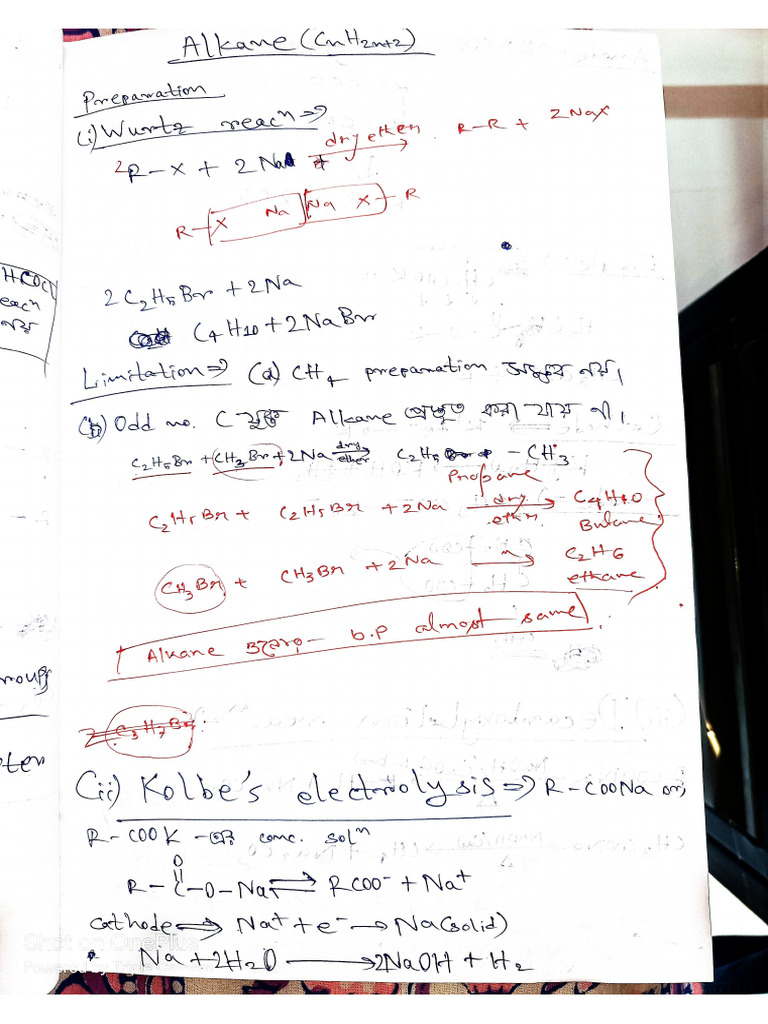 Alkane (CnH2n+2)
Preparation
(i) Wurtz reacn ⇒
2R-X + 2Na dry ether → R-R + 2NaX
R-X Na Na X-R
2C2H5Br + 2Na
C4H10 + 2NaBr
Limitation ⇒ (a) CH4 preparation সম্ভব নয়।
(b) Odd no. C যুক্ত Alkane প্রস্তুত করা যায় না।
C2H5Br + CH3Br + 2Na dry ether → C2H5 - CH3
Propane
C2H5Br + C2H5Br + 2Na dry ether → C4H10
Butane
CH3Br + CH3Br + 2Na → C2H6
ethane
Alkane b.p almost same
C3H7Br
(ii) Kolbe's electrolysis ⇒ R-COONa or,
R-COOK -এর conc. solⁿ
O
R-C-O-Na ⇌ RCOO⁻ + Na⁺
cathode ⇒ Na⁺ + e⁻ → Na(solid)
Na + 2H2O → 2NaOH + H2
HCOCl
eacn
নয়
roup
ten
Shot on OnePlus